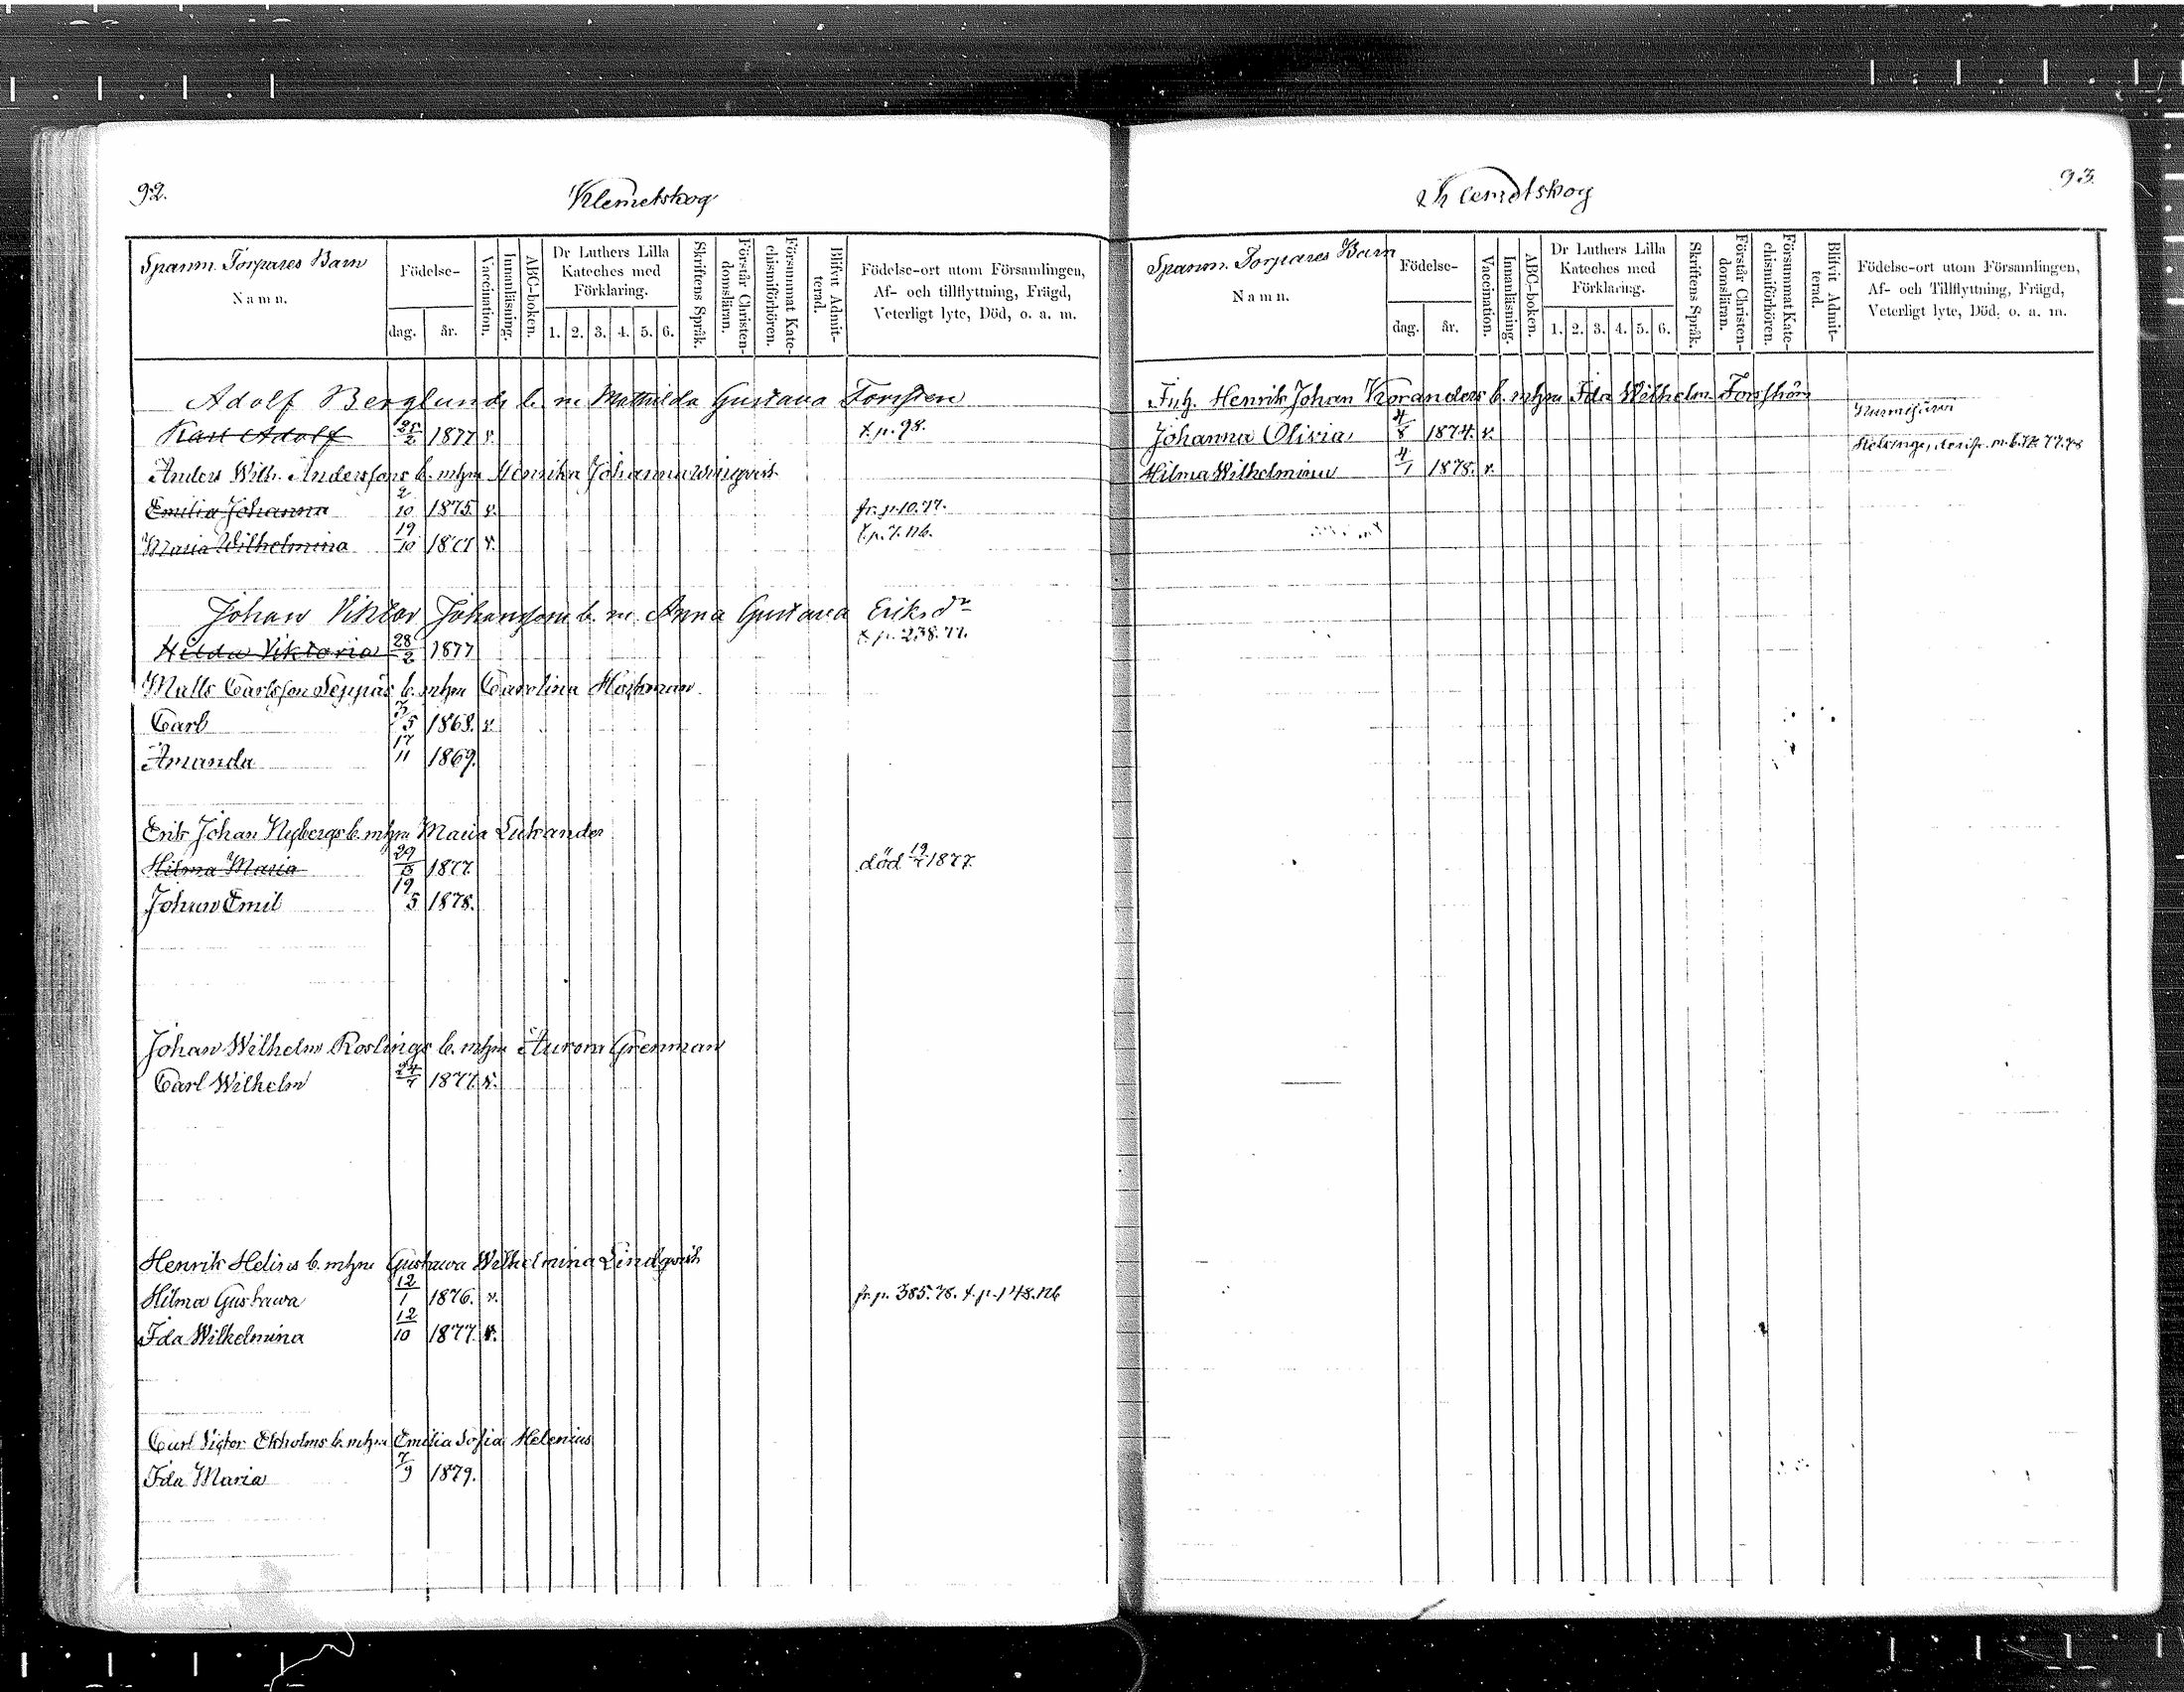 92.
Klemetskog
Spanm. Torpares Barn
Namn.
Födelse-
dag.
år.
Vaccination.
Innanläsning.
ABC-boken.
Dr Luthers Lilla
Kateches med
Förklaring.
1. 2. 3. 4. 5. 6.
Skriftens Språk.
Förstår Christen-
domsläran.
Försummat Kate-
chismiförhören.
Blifvit Admit-
terad.
Födelse-ort utom Församlingen,
Af- och tillflyttning, Frägd,
Veterligt lyte, Död, o. a. m.
Adolf Berglunds b. m. Mathilda Gustava Forsten
Karl Adolf 25/2 1877 v. t. p. 98.
Anders Wilh. Anderssons b. mhu Henrika Johanna
Emilia Johanna 2/10 1875. v. fr. p. 10. 77.
Maria Wilhelmina 19/10 v.
Johan Viktor Johanssons b. m. Anna Gustava Eriksdr
Hilda Viktoria 28/2 1877 t. p. 238. 77.
Matts Carlsson Seppäs b. mhu Carolina
Carl 3/5 1868. v.
Amanda 17/11 1869.
Erik Johan Nybergs b. mhu Maria Lukander
Hilma Maria 1877. död 19/7 1877.
Johan Emil 19/5 1878.
Johan Wilhelm Roslings b. mhu Aurora Grenman
Carl Wilhelm 24/7 1877. v.
Henrik Helins b. mhu Gustawa Wilhelmina Lindqvist
Hilma Gustawa 12/1 1876. v. fr. p. 385. 78.
Ida Wilhelmina 12/10 1877. v.
Carl Victor Ekholms b. mhu Emilia Sofia Helenius
Ida Maria 7/9 1879.
93.
Klemetskog
Spanm. Torpares Barn
Namn.
Födelse-
dag.
år.
Vaccination.
Innanläsning.
ABC-boken.
Dr Luthers Lilla
Kateches med
Förklaring.
1. 2. 3. 4. 5. 6.
Skriftens Språk.
Förstår Christen-
domsläran.
Försummat Kate-
chismiförhören.
Blifvit Admit-
terad.
Födelse-ort utom Församlingen,
Af- och Tillflyttning, Frägd,
Veterligt lyte, Död, o. a. m.
Inh. Henrik Johan Koranders b. mhu Ida Wilhelm.
Nurmijärvi
Johanna Olivia 4/8 1874. v. Helsinge,
Hilma Wilhelmina 4/1 1878. v.